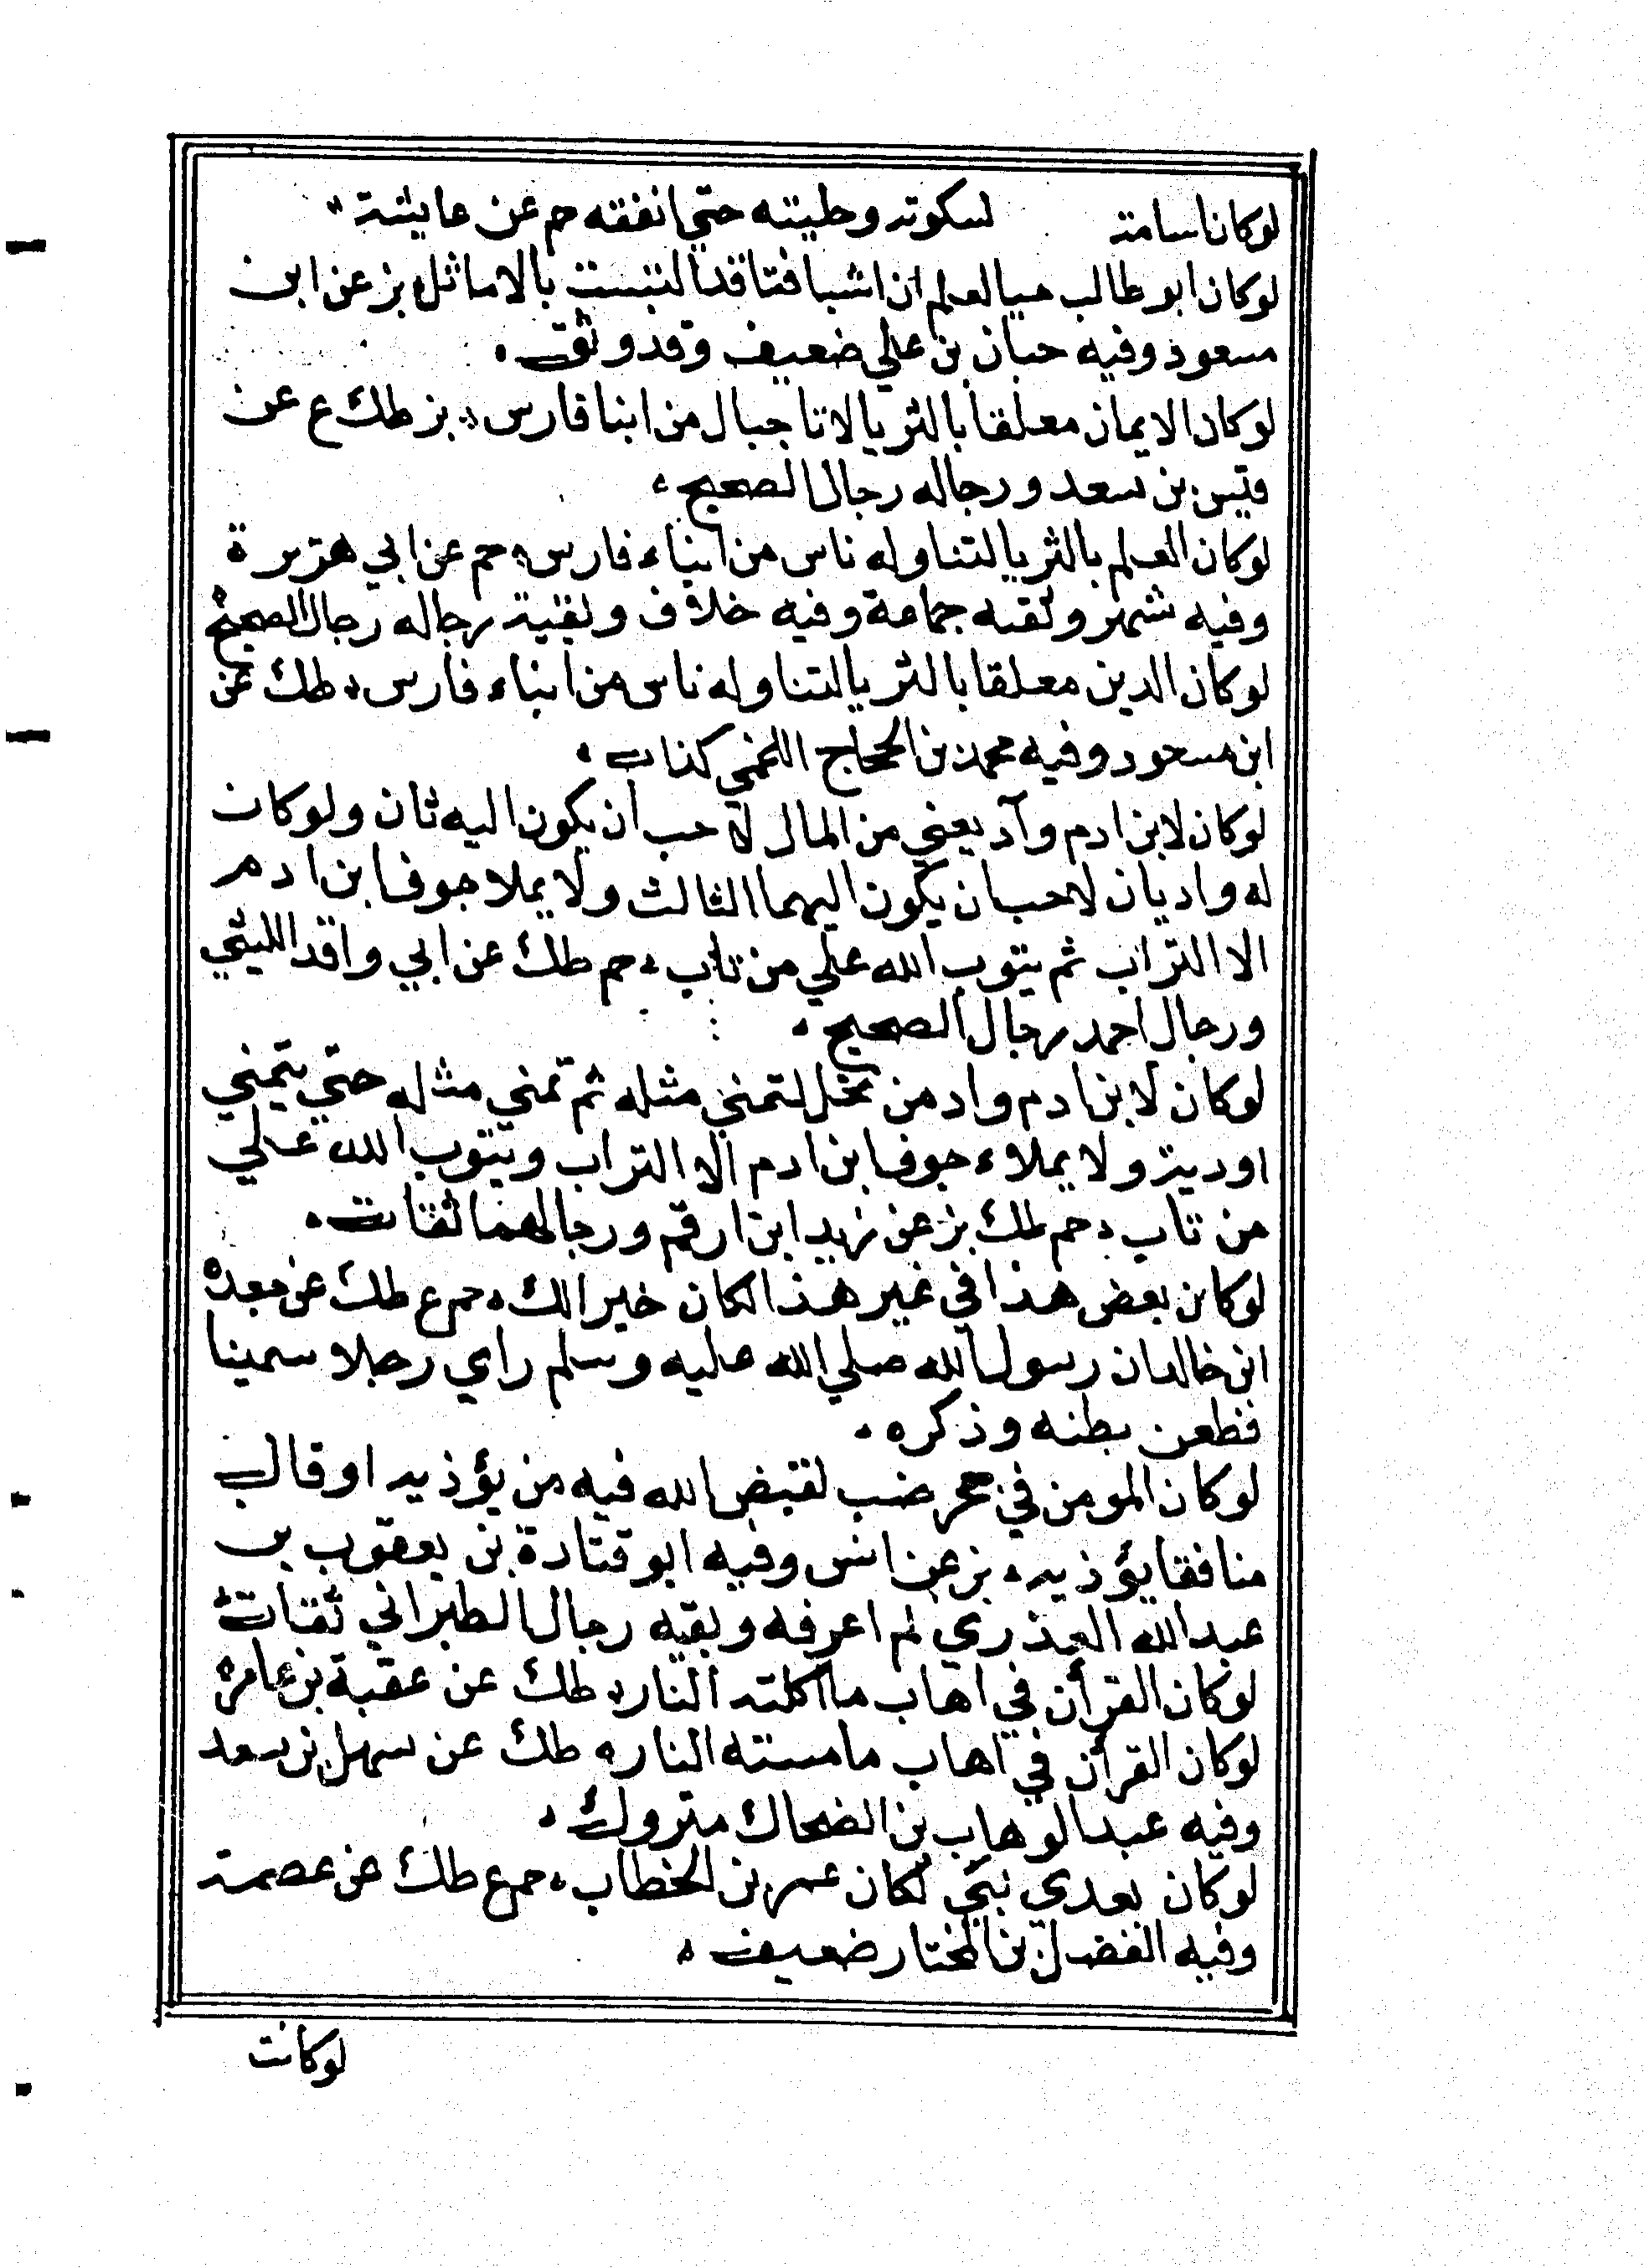 لوكان اسامة لسكوته وحليته حتي انفقه حم عن عايشة
لوكان ابو طالب حيا لعلم ان اشيا فتنا قد التبست بالاماثل بز عن ابن
مسعود وفيه حبان بن علي ضعيف وقد وثق
لوكان الايمان معلقا بالثريا لاتا جبال من ابنا فارس بز طك ع عن
قيس بن سعد ورجاله رجال الصحيح
لوكان العلم بالثريا لتناوله ناس من ابناء فارس حم عن ابي هريرة
وفيه شهر وثقه جماعة وفيه خلاف وبقية رجاله رجال الصحيح
لوكان الدين معلقا بالثريا لتناوله ناس من ابناء فارس طك عن
ابن مسعود وفيه محمد بن الحجاج اللخمي كذاب
لوكان لابن ادم واد يعني من المال لاحب ان يكون اليه ثان ولوكان
له واديان لاحب ان يكون اليهما الثالث ولا يملا جوف ابن ادم
الا التراب ثم يتوب الله علي من تاب حم طك عن ابي واقد الليثي
ورجال احمد رجال الصحيح
لوكان لابن ادم واد من نخل لتمني مثله ثم تمني مثله حتي يتمني
اودية ولا يملاء جوف ابن ادم الا التراب ويتوب الله علي
من تاب حم طك بز عن زيد ابن ارقم ورجالهما ثقات
لوكان بعض هذا في غير هذا لكان خيرا لك حم ع طك عن جعده
ابن خالد ان رسول الله صلي الله عليه وسلم راي رجلا سمينا
فطعن بطنه وذكره
لوكان المومن في جحر ضب لقيض الله فيه من يؤذيه او قال
منافقا يؤذيه بز عن انس وفيه ابو قتادة بن يعقوب بن
عبد الله العذري لم اعرفه وبقيه رجال الطبراني ثقات
لوكان القرآن في اهاب ما اكلته النار طك عن عقبة بن عامر
لوكان القرآن في اهاب مامسته النار طك عن سهل بن سعد
وفيه عبد الوهاب بن الضحاك متروك
لوكان بعدي نبي لكان عمر بن الخطاب حم ع طك عن عصمة
وفيه الفضل بن المختار ضعيف
لوكانت